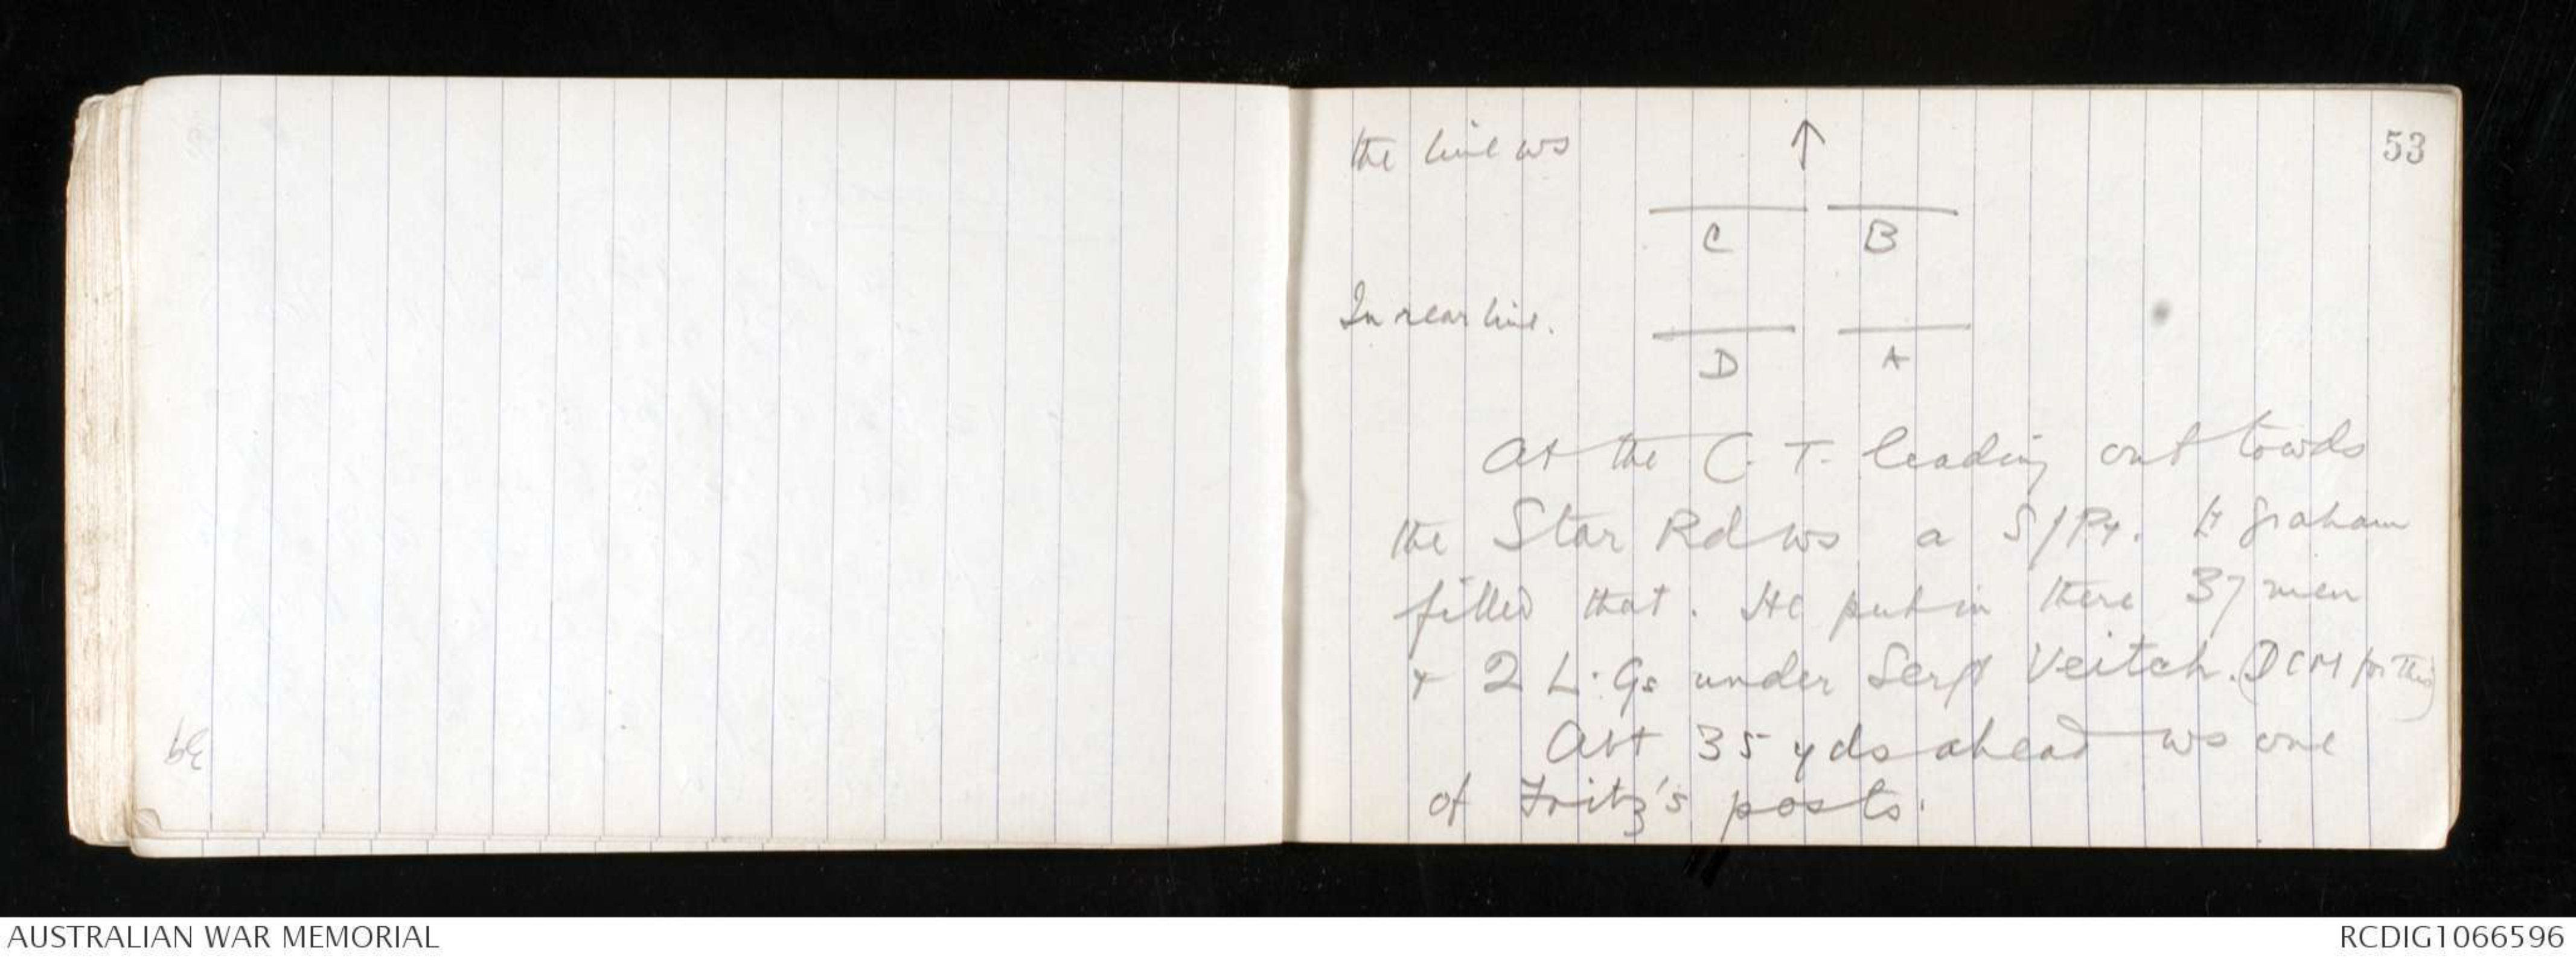 53
the line ws
↑
C B
In rear line.
D A
At the C.T. leading out towds
the Star Rd ws a S/Pt. Lt Graham
filled that. He put in there 37 men
+ 2 L.Gs under Sergt Veitch. (DCM for this)
Abt 35 yds ahead ws one
of Fritz's posts.
AUSTRALIAN WAR MEMORIAL
RCDIG1066596